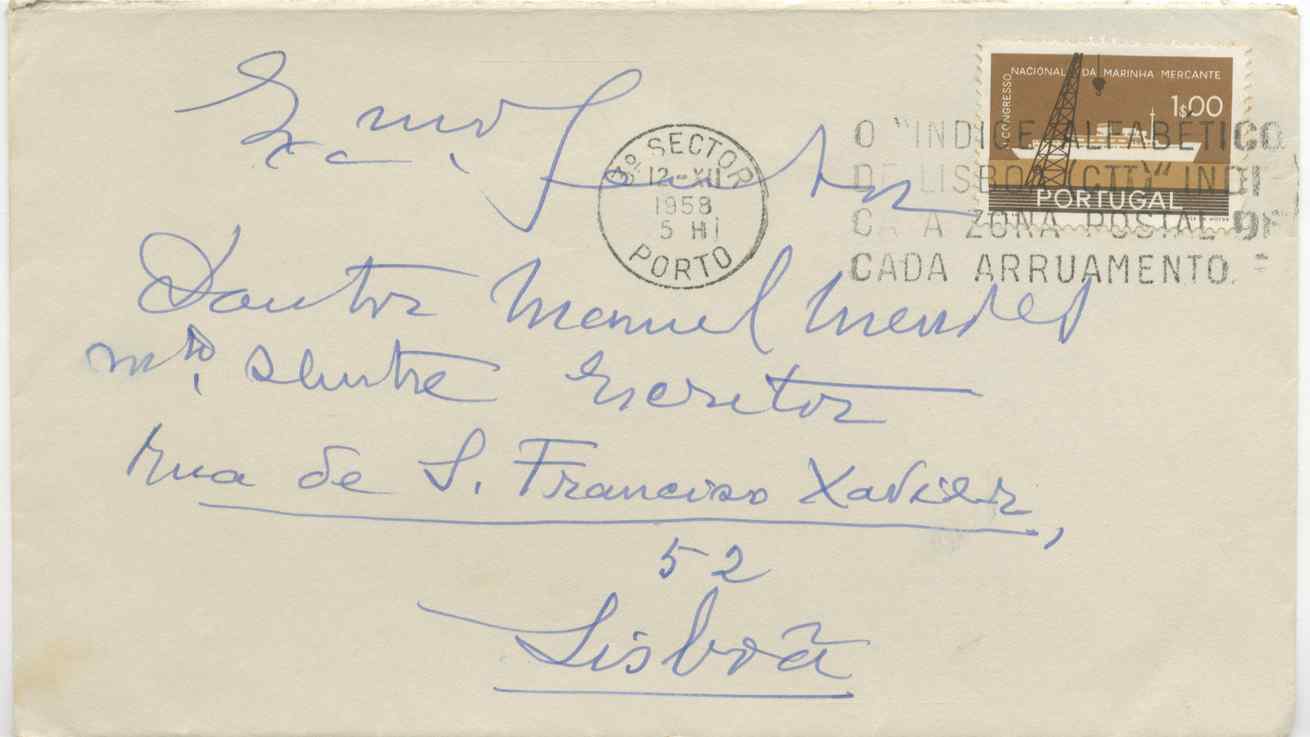 CONGRESSO NACIONAL DA MARINHA MERCANTE
1$00
PORTUGAL
3º SECTOR
12-XII
1958
5 H
PORTO
O "INDICE ALFABÉTICO
DE LISBOA (CTT)" INDI
CA A ZONA POSTAL DE
CADA ARRUAMENTO.
Exmo. Senhor
Doutor Manuel Mendes
mto. Ilustre Escritor
Rua de S. Franciso Xavier,
52
Lisboã